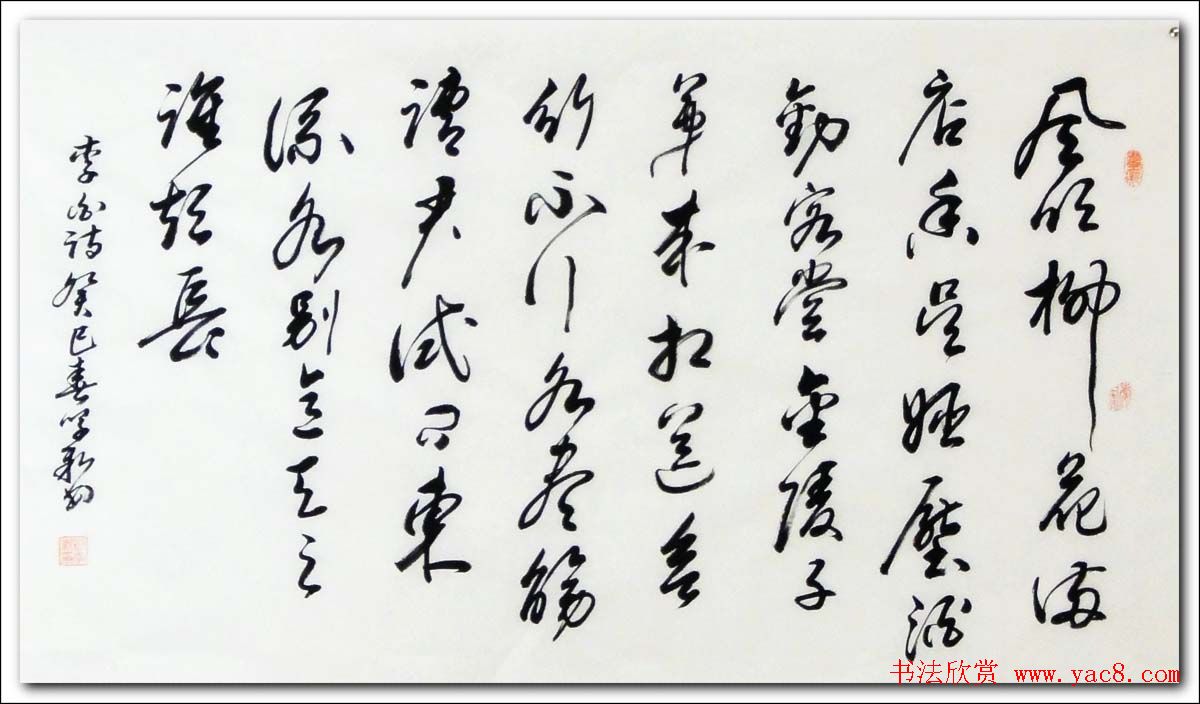 風吹柳花滿
店香吳姬壓酒
勸客嘗金陵子
弟來相送欲
行不行各盡觴
請君試問東
流水別意與之
誰短長
李白詩癸巳春
书法欣赏 www.yac8.com